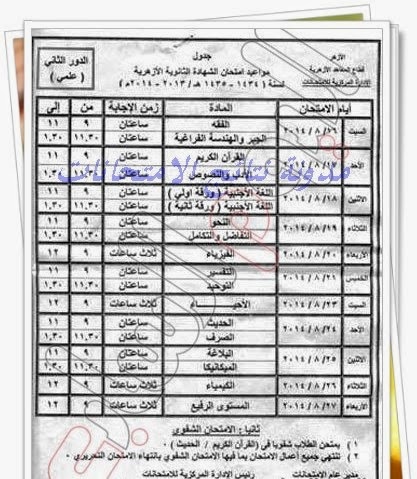 الأزهر
قطاع المعاهد الأزهرية
الإدارة المركزية للامتحانات
جدول
مواعيد امتحان الشهادة الثانوية الأزهرية
لسنة (١٤٣٤ - ١٤٣٥هـ / ٢٠١٣ - ٢٠١٤م)
الدور الثاني
(علمي)
أيام الامتحان المادة زمن الإجابة من إلى
السبت ٢٠١٤/٨/١٦ الفقه ساعتان ٩ ١١
الجبر والهندسة الفراغية ساعتان ١١,٣٠ ١,٣٠
الأحد ٢٠١٤/٨/١٧ القرآن الكريم ساعتان ٩ ١١
الأدب والنصوص ساعتان ١١,٣٠ ١,٣٠
الاثنين ٢٠١٤/٨/١٨ اللغة الأجنبية (ورقة أولى) ساعتان ٩ ١١
اللغة الأجنبية (ورقة ثانية) ساعتان ١١,٣٠ ١,٣٠
الثلاثاء ٢٠١٤/٨/١٩ النحو ساعتان ٩ ١١
التفاضل والتكامل ساعتان ١١,٣٠ ١,٣٠
الأربعاء ٢٠١٤/٨/٢٠ الفيزياء ثلاث ساعات ٩ ١٢
الخميس ٢٠١٤/٨/٢١ التفسير ساعتان ٩ ١١
التوحيد ساعتان ١١,٣٠ ١,٣٠
السبت ٢٠١٤/٨/٢٣ الأحياء ثلاث ساعات ٩ ١٢
الأحد ٢٠١٤/٨/٢٤ الحديث ساعتان ٩ ١١
الصرف ساعتان ١١,٣٠ ١,٣٠
الاثنين ٢٠١٤/٨/٢٥ البلاغة ساعتان ٩ ١١
الميكانيكا ساعتان ١١,٣٠ ١,٣٠
الثلاثاء ٢٠١٤/٨/٢٦ الكيمياء ثلاث ساعات ٩ ١٢
الأربعاء ٢٠١٤/٨/٢٧ المستوى الرفيع ثلاث ساعات ٩ ١٢
مدونة نتائج الامتحانات
ثانيا: الامتحان الشفوي
١ ) يمتحن الطلاب شفويا في (القرآن الكريم / الحديث)
٢ ) تنتهي جميع أعمال الامتحان بما فيها الامتحان الشفوي بانتهاء الامتحان التحريري
مدير عام الامتحانات رئيس الإدارة المركزية للامتحانات